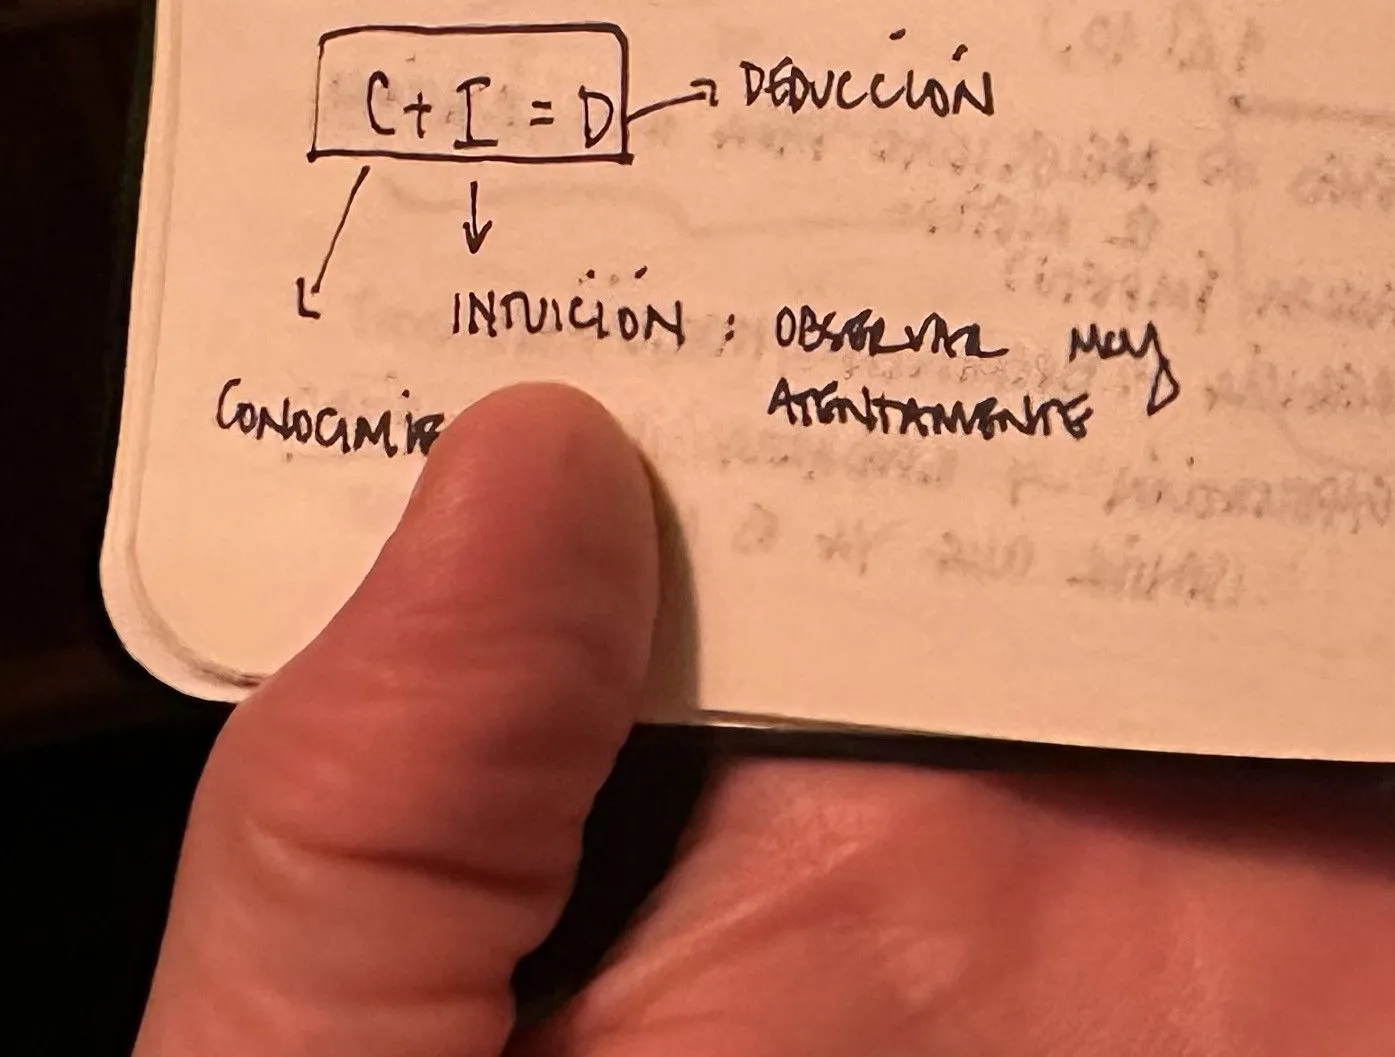 C + I = D → DEDUCCIÓN
INTUICIÓN : OBSERVAR MUY
ATENTAMENTE
CONOCIMIE